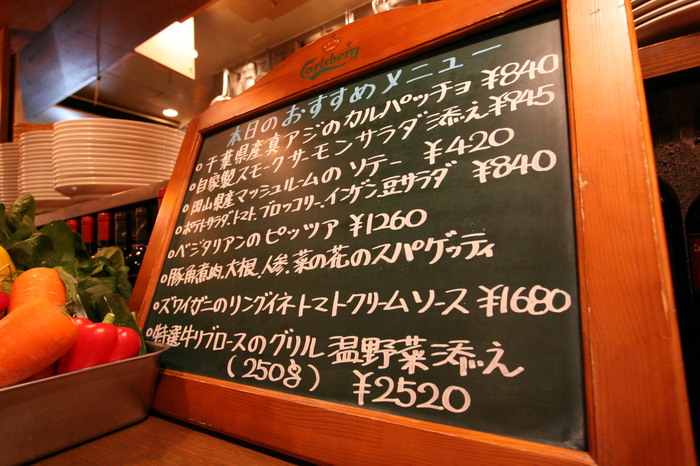 Carlsberg
本日のおすすめメニュー
○千葉県産真アジのカルパッチョ ¥840
○自家製スモークサーモンサラダ添え ¥945
○岡山県産マッシュルームのソテー ¥420
○ポテトサラダ、トマト、ブロッコリー、インゲン豆サラダ ¥840
○ベジタリアンのピッツア ¥1260
○豚角煮肉、大根、人参、菜の花のスパゲッティ
○ズワイガニのリングイネトマトクリームソース ¥1680
○特選牛リブロースのグリル 温野菜添え
(250g) ¥2520